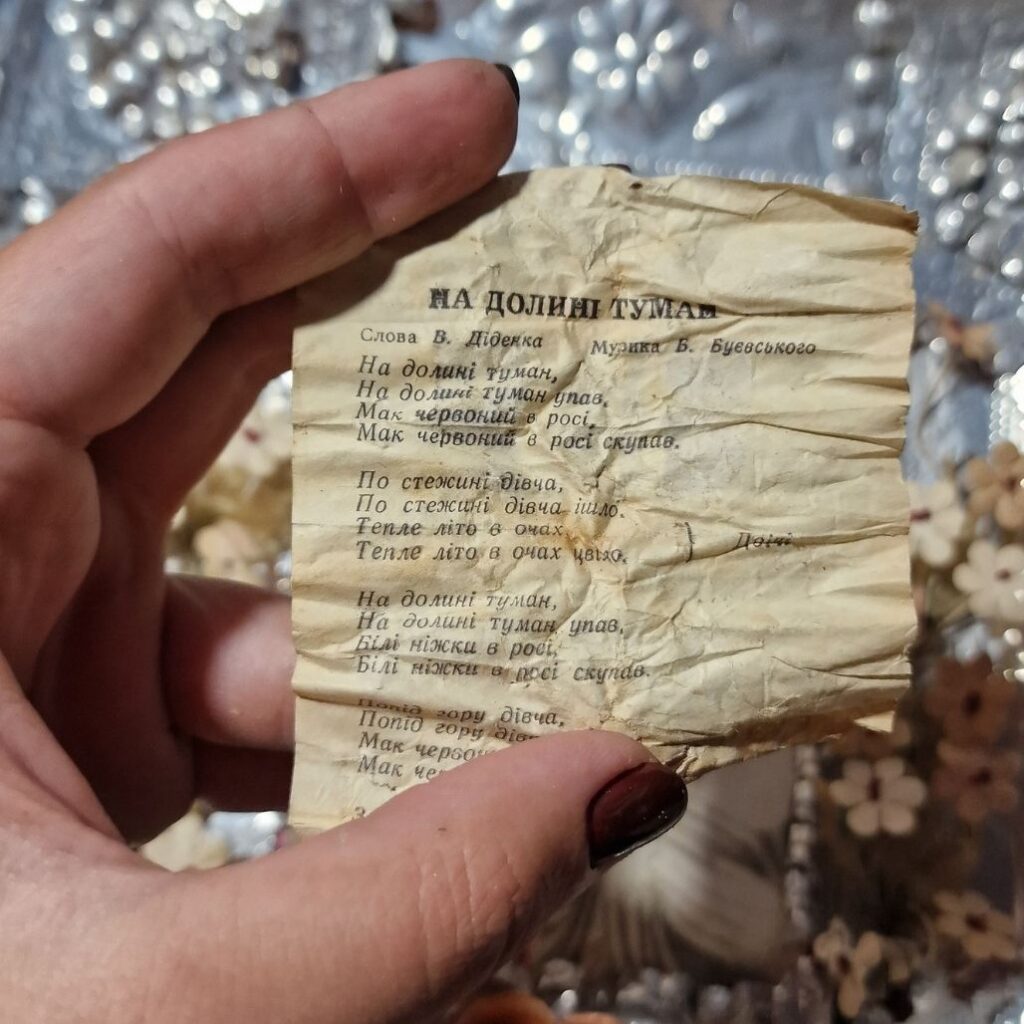 НА ДОЛИНІ ТУМАН
Слова В. Діденка Музика Б. Буєвського
На долині туман,
На долині туман упав.
Мак червоний в росі,
Мак червоний в росі скупав.
По стежині дівча,
По стежині дівча ішло.
Тепле літо в очах
Тепле літо в очах цвіло.
Двічі
На долині туман,
На долині туман упав,
Білі ніжки в росі,
Білі ніжки в росі скупав.
Попід гору дівча,
Попід гору
Мак
Мак